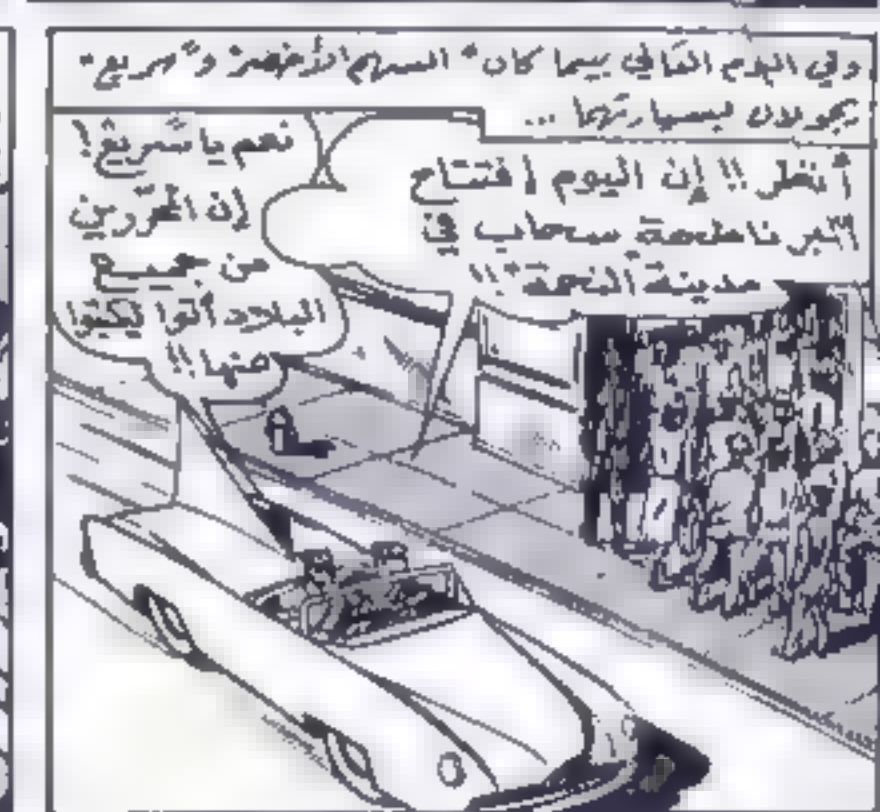 وفي اليوم التالي بينما كان "السهم الأخضر" و"سريع"
يجولان بسيارتهما ...
أنظر !! إن اليوم افتتاح
أكبر ناطحة سحاب في
مدينة "النجمة" !!
نعم يا سريع !
إن المحررين
من جميع
البلاد أتوا ليكتبوا
عنها !!